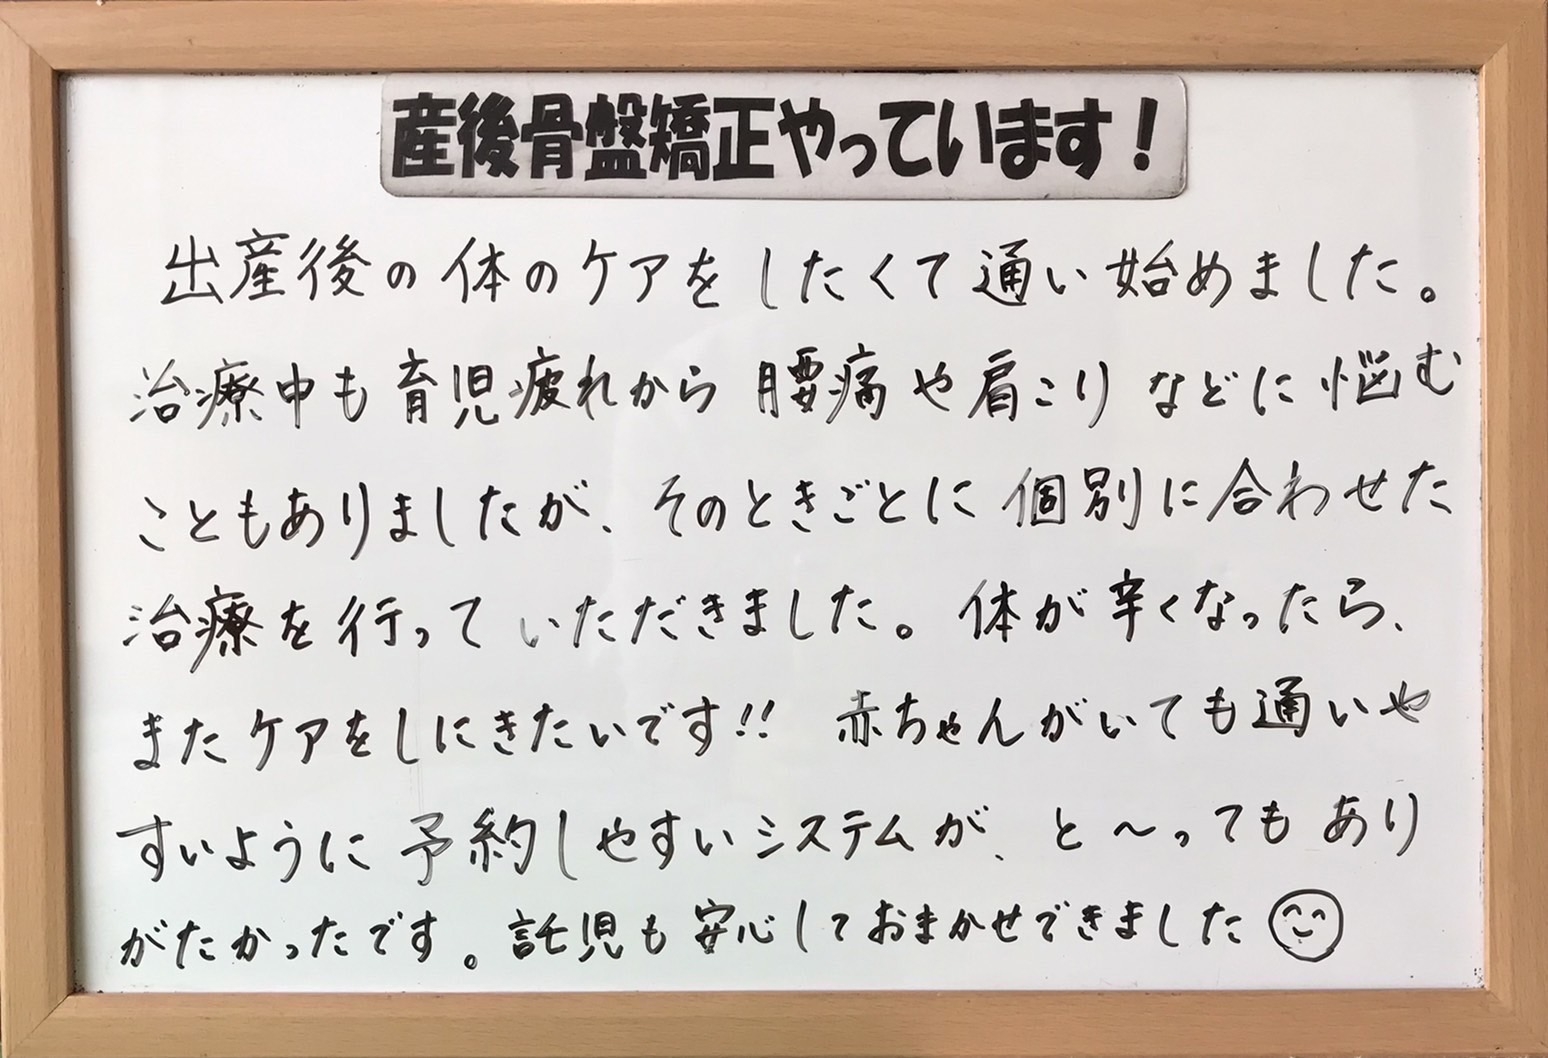 産後骨盤矯正やっています！
出産後の体のケアをしたくて通い始めました。
治療中も育児疲れから腰痛や肩こりなどに悩む
こともありましたが、そのときごとに個別に合わせた
治療を行っていただきました。体が辛くなったら、
またケアをしにきたいです!! 赤ちゃんがいても通いや
すいように予約しやすいシステムが、と〜ってもあり
がたかったです。託児も安心しておまかせできました